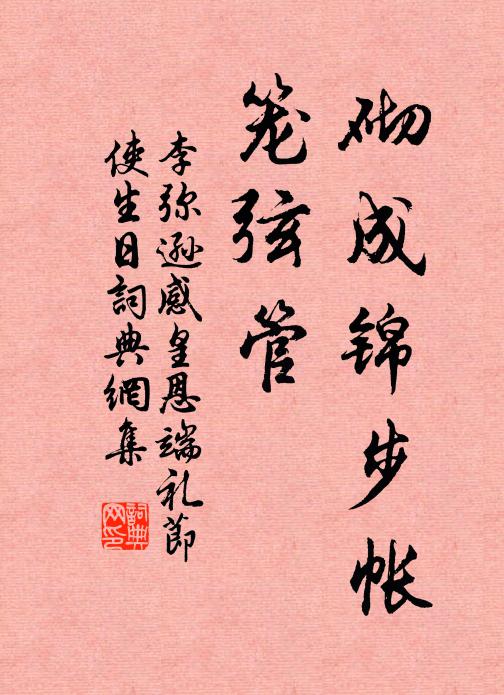 砌成锦步帐
笼弦管
李弥逊感皇恩端礼节
使生日詞典網集
詞典
网印